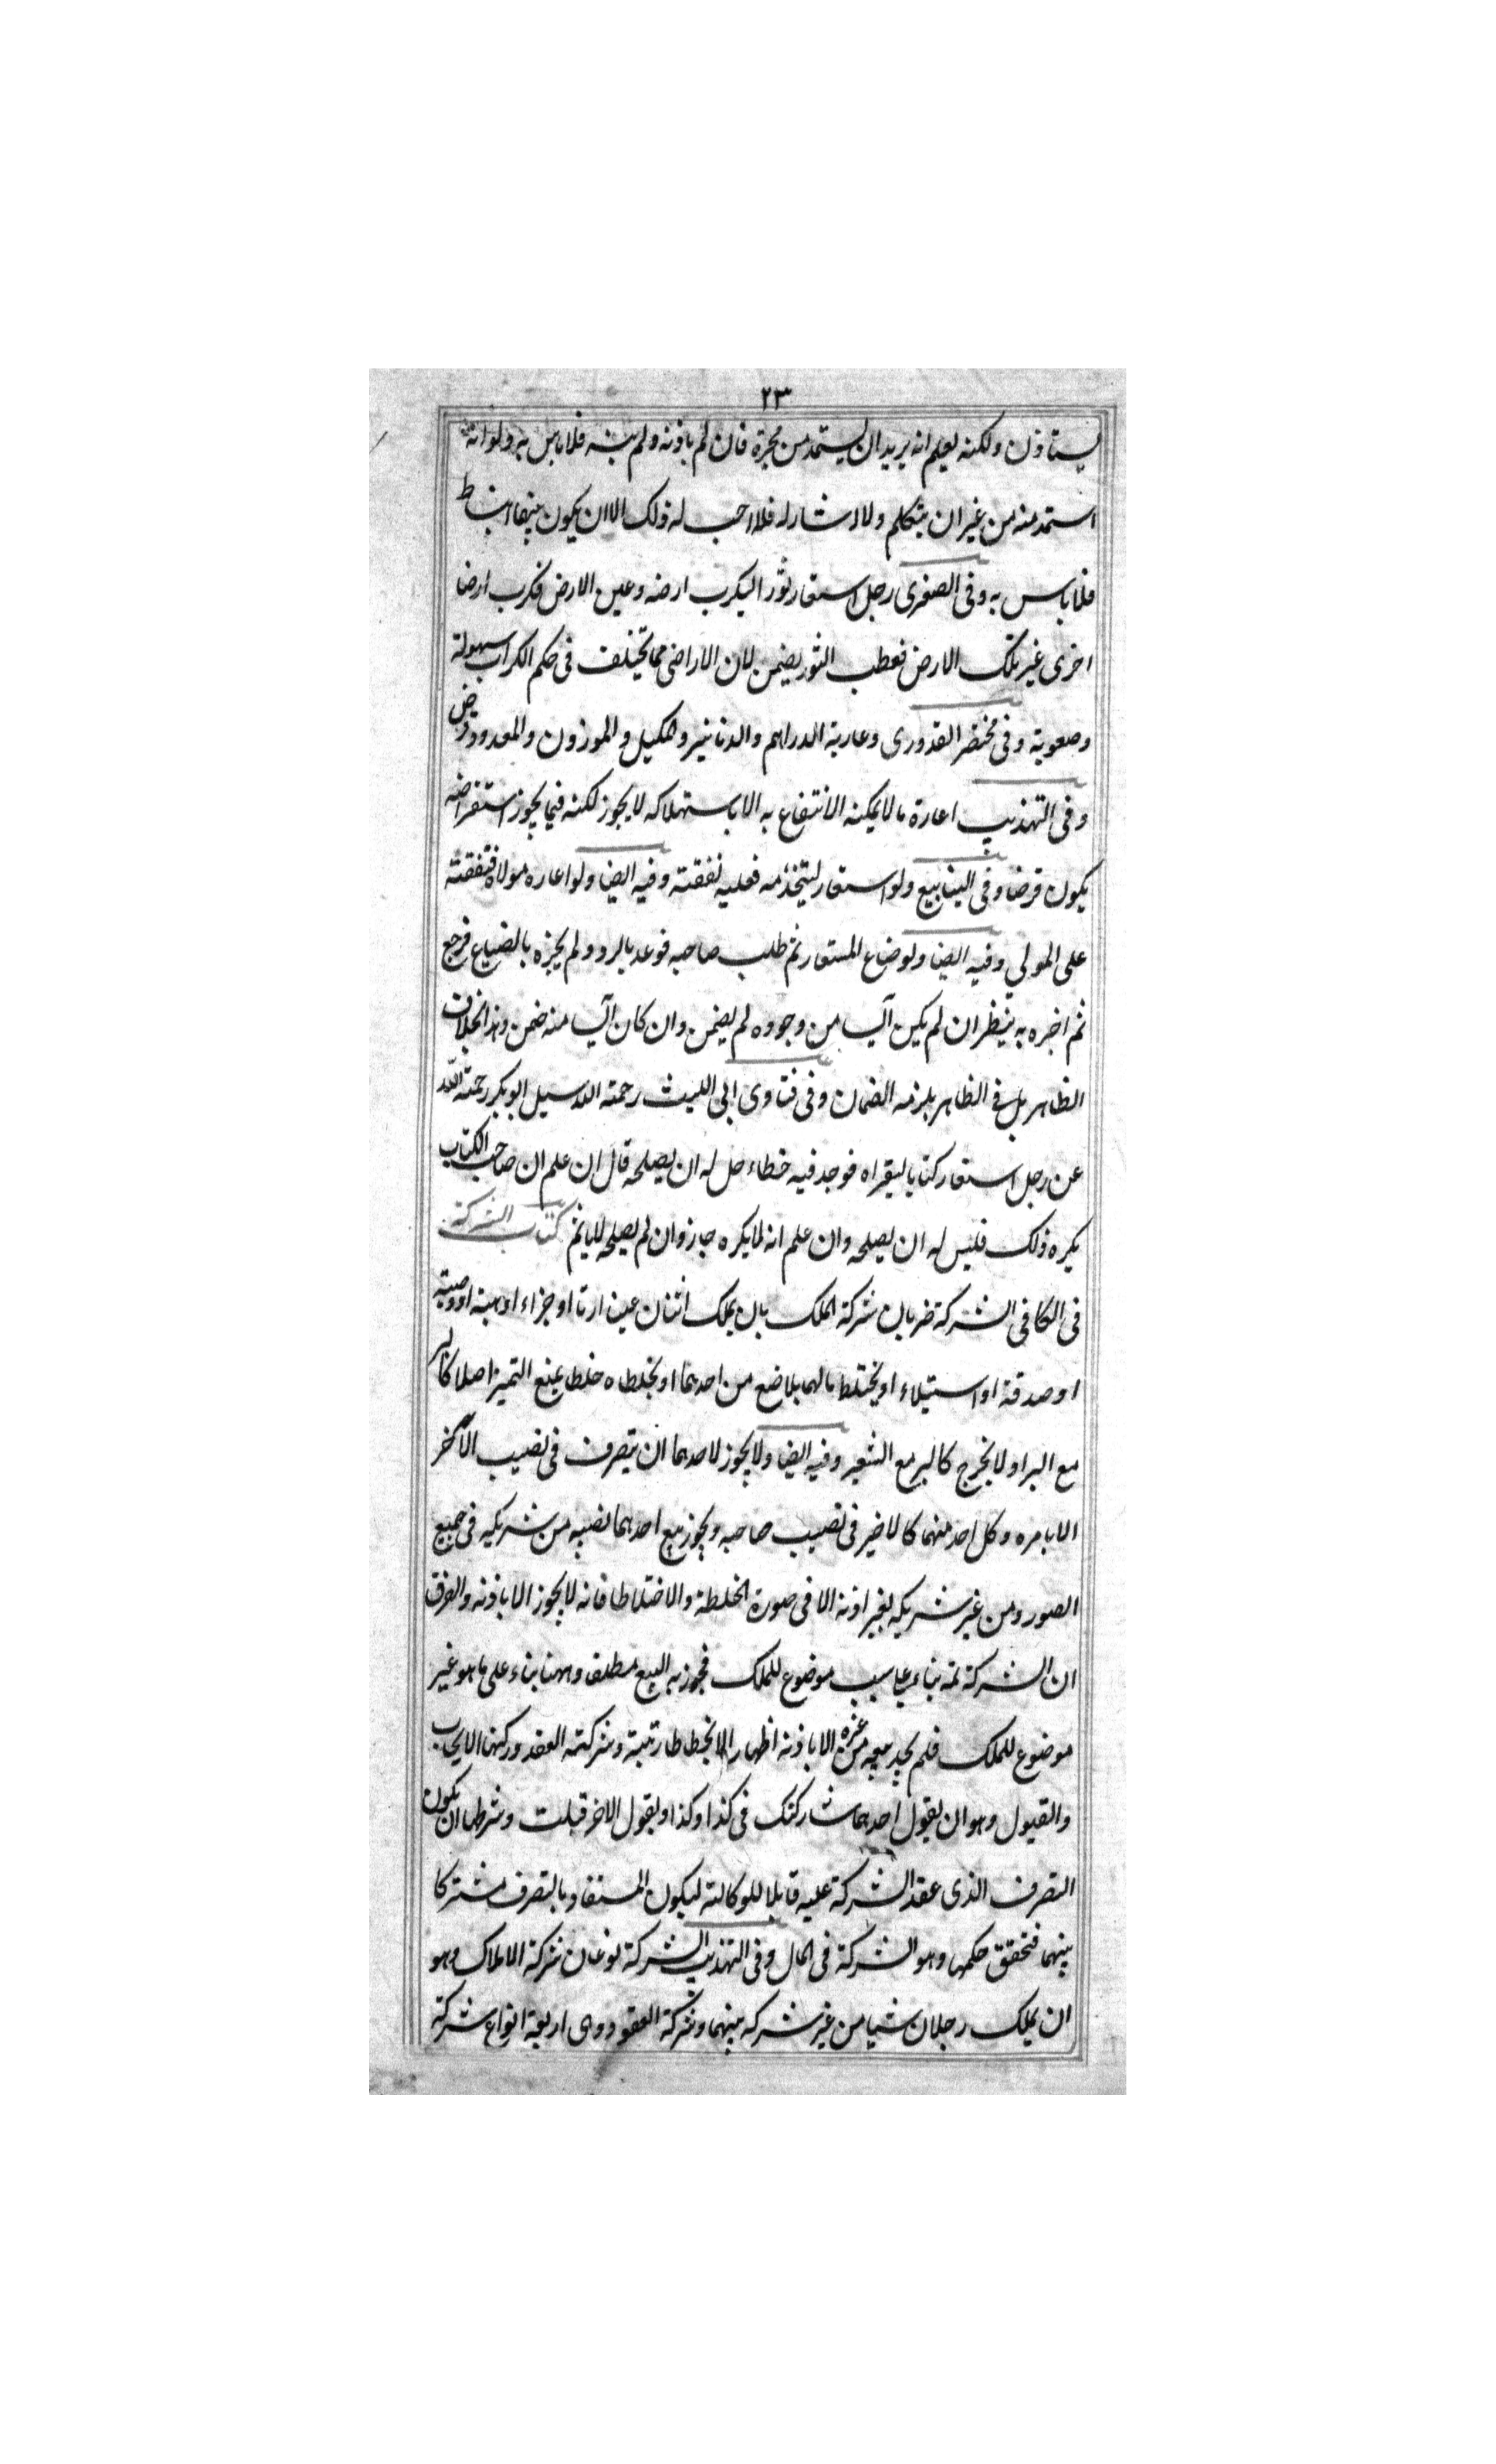 ٢٣
يستاذن ولكنه يعلم انه يريد ان يستمد من محبرة فان لم ياذنه ولم ينهه فلا باس به ولو انه
استمد منه من غير ان يتكلم ولا اشار له فلا احب له ذلك الا ان يكون بينهما انبساط
فلا باس به وفى الصغرى رجل استعار ثورا ليكرب ارضه وعين الارض فكرب ارضا
اخرى غير تلك الارض فعطب الثور يضمن لان الاراضى مما تختلف فى حكم الكراب سهولة
وصعوبة وفى مختصر القدورى وعارية الدراهم والدنانير والمكيل والموزون والمعدود قرض
وفى التهذيب اعارة ما لا يمكنه الانتفاع به الا باستهلاكه لا يجوز لكنه فيما يجوز استقراضه
يكون قرضا وفى الينابيع ولو استعار ليستخدمه فعليه نفقته وفيه ايضا ولو اعاره مولاه فنفقته
على المولى وفيه ايضا ولو ضاع المستعار ثم طلب صاحبه فوعد بالرد ولم يخبره بالضياع فرجع
ثم اخبره به ينظر ان لم يكن آيسا من وجوده لم يضمن وان كان آيسا منه ضمن وهذا خلاف
الظاهر بل فى الظاهر يلزمه الضمان وفى فتاوى ابى الليث رحمة الله سيل ابو بكر رحمة الله
عن رجل استعار كتابا ليقراه فوجد فيه خطاء هل له ان يصلحه قال ان علم ان صاحب الكتاب
يكره ذلك فليس له ان يصلحه وان علم انه لا يكره جاز وان لم يصلحه لا ياثم كتاب الشركة
فى الكافى الشركة ضربان شركة الملك بان يملك اثنان عينا ارثا او جزاء او هبة او وصية
او صدقة او استيلاء او يختلط مالهما بلا صنع من احدهما او يخلطاه خلطا يمنع التميز اصلا كالبر
مع البر او لا يخرج كالبر مع الشعير وفيه ايضا ولا يجوز لاحدهما ان يتصرف فى نصيب الآخر
الا بامره وكل احد منهما كالاخير فى نصيب صاحبه ويجوز بيع احدهما نصيبه من شريكه فى جميع
الصور ومن غير شريكه بغير اذنه الا فى صورة الخلطة والاختلاط فانه لا يجوز الا باذنه والفرق
ان الشركة ثمه بناء على سبب موضوع للملك فيجوز به البيع مطلقا وههنا بناء على ما هو غير
موضوع للملك فلم يجز بيعه من غيره الا باذنه اظهارا لانحطاط رتبته وشركة العقد وركنها الايجاب
والقبول وهو ان يقول احدهما شاركتك فى كذا وكذا ويقول الاخر قبلت وشرطها ان يكون
التصرف الذى عقد الشركة عليه قابلا للوكالة ليكون المستفاد بالتصرف مشتركا
بينهما فتحقق حكمها وهو الشركة فى المال وفى التهذيب الشركة نوعان شركة الاملاك وهو
ان يملك رجلان شيا من غير شركه بينهما وشركة العقود وهى اربعة انواع شركة